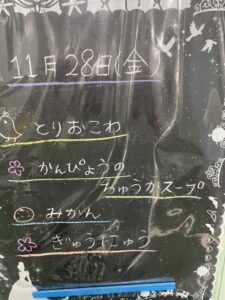 11月28日(金)
とりおこわ
かんぴょうの
ちゅうかスープ
みかん
ぎゅうにゅう